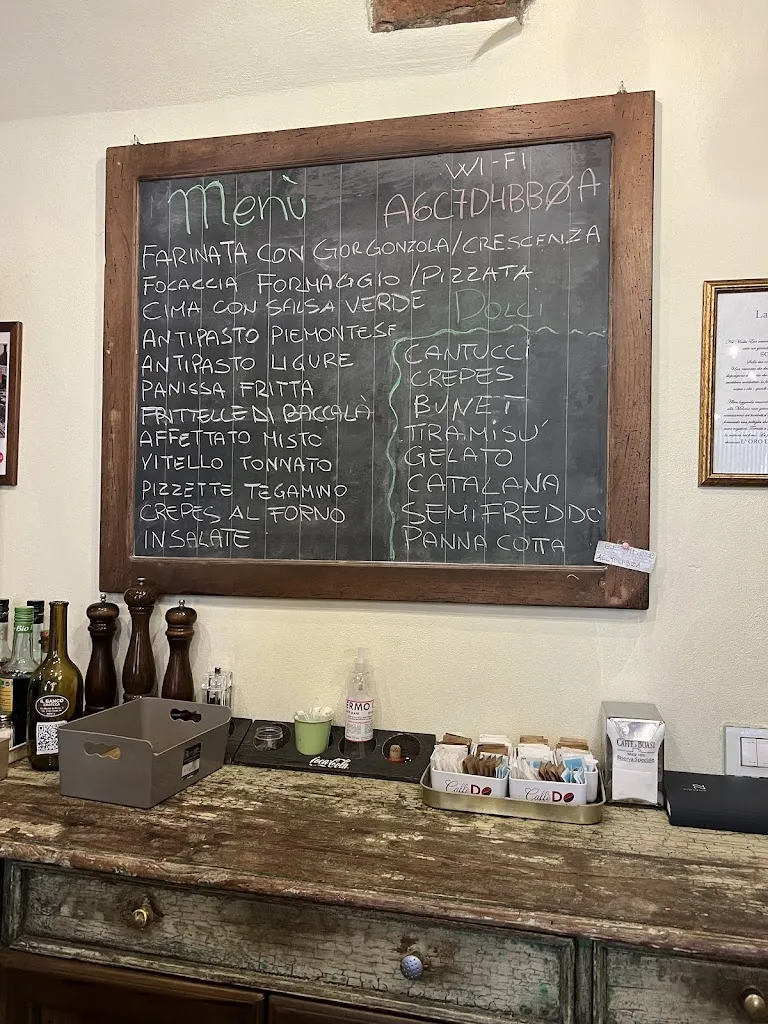 WI-FI
Menù
A6C7D4BBØA
FARINATA CON GORGONZOLA/CRESCENZA
FOCACCIA FORMAGGIO/PIZZATA
CIMA CON SALSA VERDE
ANTIPASTO PIEMONTESE
ANTIPASTO LIGURE
PANISSA FRITTA
FRITTELLE DI BACCALÀ
AFFETTATO MISTO
VITELLO TONNATO
PIZZETTE TEGAMINO
CREPES AL FORNO
INSALATE
DOLCI
CANTUCCI
CREPES
BUNET
TIRAMISU'
GELATO
CATALANA
SEMIFREDDO
PANNA COTTA
La
Bio
IL BANCO
Coca-Cola
ERMO
CafféDO
CafféDO
CAFFÈ BOASI